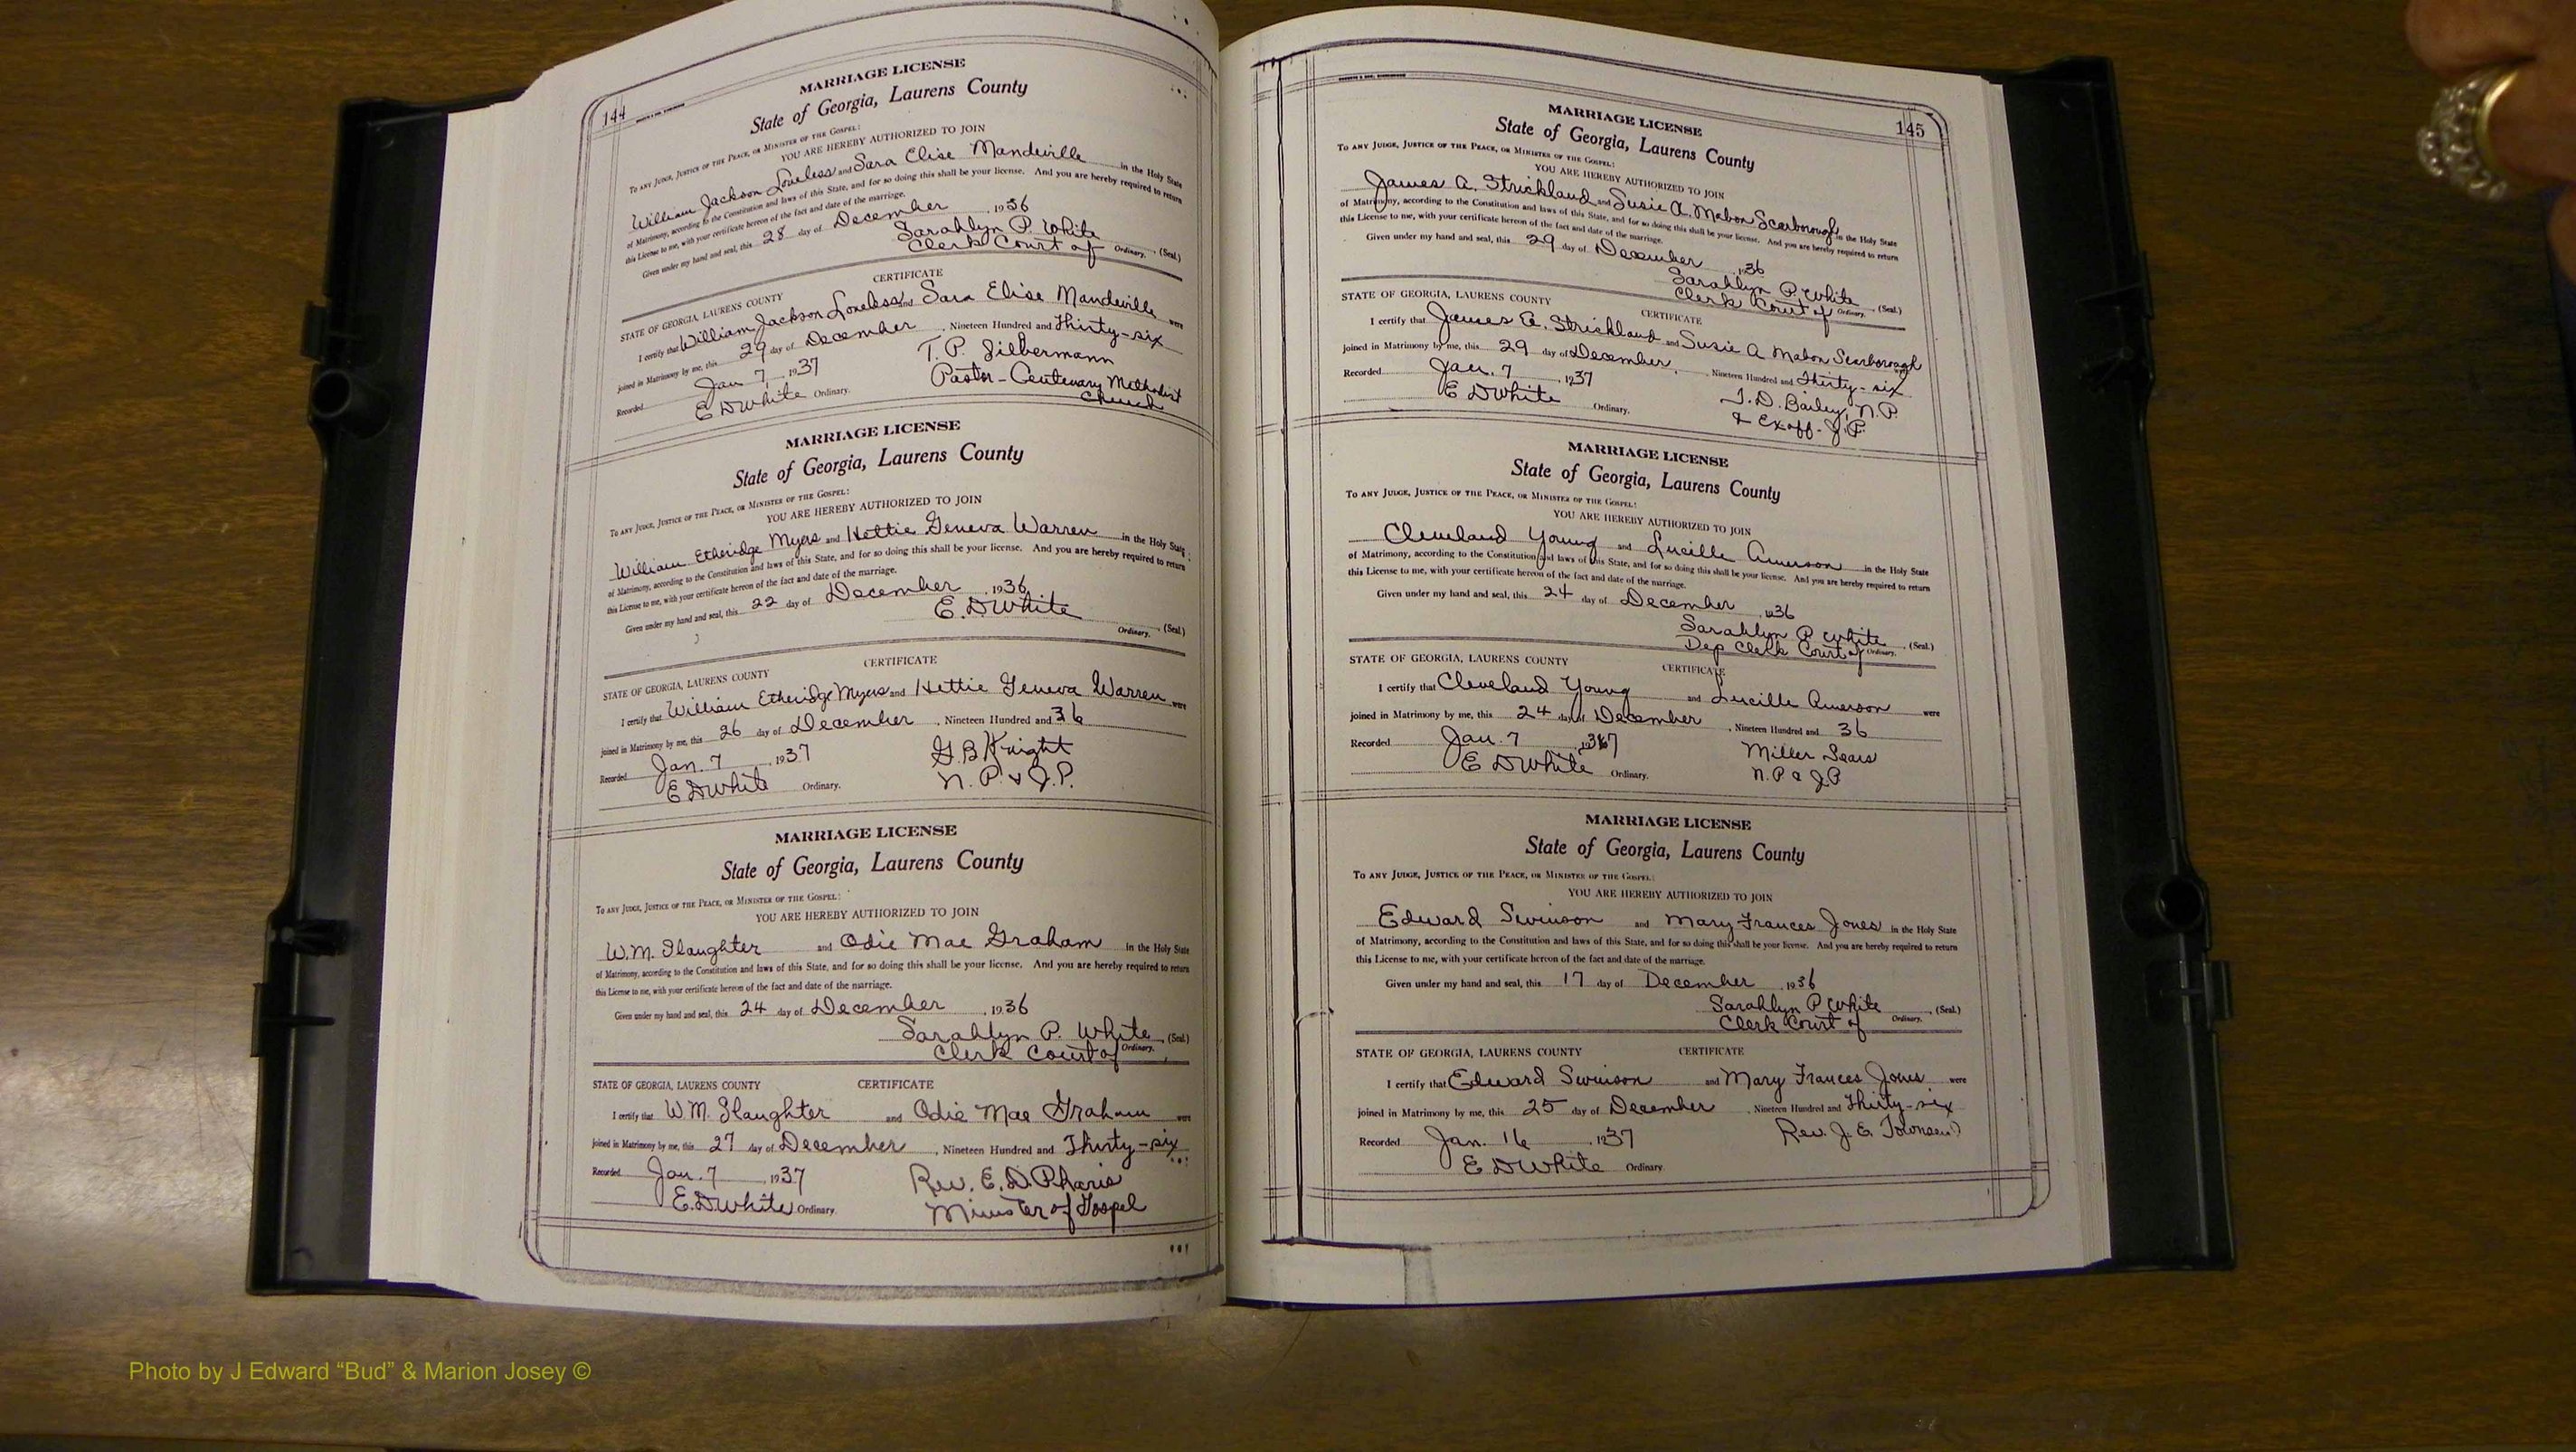 144
MARRIAGE LICENSE
State of Georgia, Laurens County
To any Judge, Justice of the Peace, or Minister of the Gospel:
YOU ARE HEREBY AUTHORIZED TO JOIN
William Jackson Loveless and Sara Elise Mandeville in the Holy State
of Matrimony, according to the Constitution and laws of this State, and for so doing this shall be your license. And you are hereby required to return
this License to me, with your certificate hereon of the fact and date of the marriage.
Given under my hand and seal, this 28 day of December, 1936
Sarahlyn P. White (Seal.)
Clerk Court of Ordinary.
CERTIFICATE
STATE OF GEORGIA, LAURENS COUNTY
I certify that William Jackson Loveless and Sara Elise Mandeville were
joined in Matrimony by me, this 29 day of December, Nineteen Hundred and Thirty-six
Recorded Jan 7, 1937
T. P. Silbermann
E D White Ordinary.
Pastor - Centenary Methodist
Church
MARRIAGE LICENSE
State of Georgia, Laurens County
To any Judge, Justice of the Peace, or Minister of the Gospel:
YOU ARE HEREBY AUTHORIZED TO JOIN
William Etheridge Myers and Hettie Geneva Warren in the Holy State
of Matrimony, according to the Constitution and laws of this State, and for so doing this shall be your license. And you are hereby required to return
this License to me, with your certificate hereon of the fact and date of the marriage.
Given under my hand and seal, this 22 day of December, 1936
E. D White (Seal.)
Ordinary.
CERTIFICATE
STATE OF GEORGIA, LAURENS COUNTY
I certify that William Etheridge Myers and Hettie Geneva Warren were
joined in Matrimony by me, this 26 day of December, Nineteen Hundred and 36
Recorded Jan. 7, 1937
G. B Knight
E D White Ordinary.
N. P. & J. P.
MARRIAGE LICENSE
State of Georgia, Laurens County
To any Judge, Justice of the Peace, or Minister of the Gospel:
YOU ARE HEREBY AUTHORIZED TO JOIN
W. M. Slaughter and Odie Mae Graham in the Holy State
of Matrimony, according to the Constitution and laws of this State, and for so doing this shall be your license. And you are hereby required to return
this License to me, with your certificate hereon of the fact and date of the marriage.
Given under my hand and seal, this 24 day of December, 1936
Sarahlyn P. White (Seal.)
Clerk Court of Ordinary.
STATE OF GEORGIA, LAURENS COUNTY CERTIFICATE
I certify that W M. Slaughter and Odie Mae Graham were
joined in Matrimony by me, this 27 day of December, Nineteen Hundred and Thirty-six
Recorded Jan. 7, 1937
Rev. E. D. Pharis
E. D. White Ordinary.
Minister of Gospel
145
MARRIAGE LICENSE
State of Georgia, Laurens County
To any Judge, Justice of the Peace, or Minister of the Gospel:
YOU ARE HEREBY AUTHORIZED TO JOIN
James A. Strickland and Susie A. Mabon Scarborough in the Holy State
of Matrimony, according to the Constitution and laws of this State, and for so doing this shall be your license. And you are hereby required to return
this License to me, with your certificate hereon of the fact and date of the marriage.
Given under my hand and seal, this 29 day of December, 1936
Sarahlyn P. White (Seal.)
Clerk Court of Ordinary.
STATE OF GEORGIA, LAURENS COUNTY CERTIFICATE
I certify that James A. Strickland and Susie A Mabon Scarborough were
joined in Matrimony by me, this 29 day of December, Nineteen Hundred and Thirty-six
Recorded Jan. 7, 1937
J. D. Bailey, N. P.
E D White Ordinary.
& Exoff. J. P.
MARRIAGE LICENSE
State of Georgia, Laurens County
To any Judge, Justice of the Peace, or Minister of the Gospel:
YOU ARE HEREBY AUTHORIZED TO JOIN
Cleveland Young and Lucille Amerson in the Holy State
of Matrimony, according to the Constitution and laws of this State, and for so doing this shall be your license. And you are hereby required to return
this License to me, with your certificate hereon of the fact and date of the marriage.
Given under my hand and seal, this 24 day of December, 1936
Sarahlyn P White (Seal.)
Dep Clerk Court of Ordinary.
STATE OF GEORGIA, LAURENS COUNTY CERTIFICATE
I certify that Cleveland Young and Lucille Amerson were
joined in Matrimony by me, this 24 day of December, Nineteen Hundred and 36
Recorded Jan. 7, 1937
Miller Sears
E D White Ordinary.
N. P & J P
MARRIAGE LICENSE
State of Georgia, Laurens County
To any Judge, Justice of the Peace, or Minister of the Gospel:
YOU ARE HEREBY AUTHORIZED TO JOIN
Edward Swinson and Mary Frances Jones in the Holy State
of Matrimony, according to the Constitution and laws of this State, and for so doing this shall be your license. And you are hereby required to return
this License to me, with your certificate hereon of the fact and date of the marriage.
Given under my hand and seal, this 17 day of December, 1936
Sarahlyn P White (Seal.)
Clerk Court of Ordinary.
STATE OF GEORGIA, LAURENS COUNTY CERTIFICATE
I certify that Edward Swinson and Mary Frances Jones were
joined in Matrimony by me, this 25 day of December, Nineteen Hundred and Thirty-six
Recorded Jan. 16, 1937
Rev. J. E. Townsend
E D White Ordinary
Photo by J Edward “Bud” & Marion Josey ©